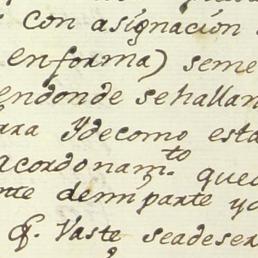 con asignación
enforma) seme
endonde sehallan
rra Ydecomo esta
acordonam.to que
nte demiparte y
q.e Vaste seadeser